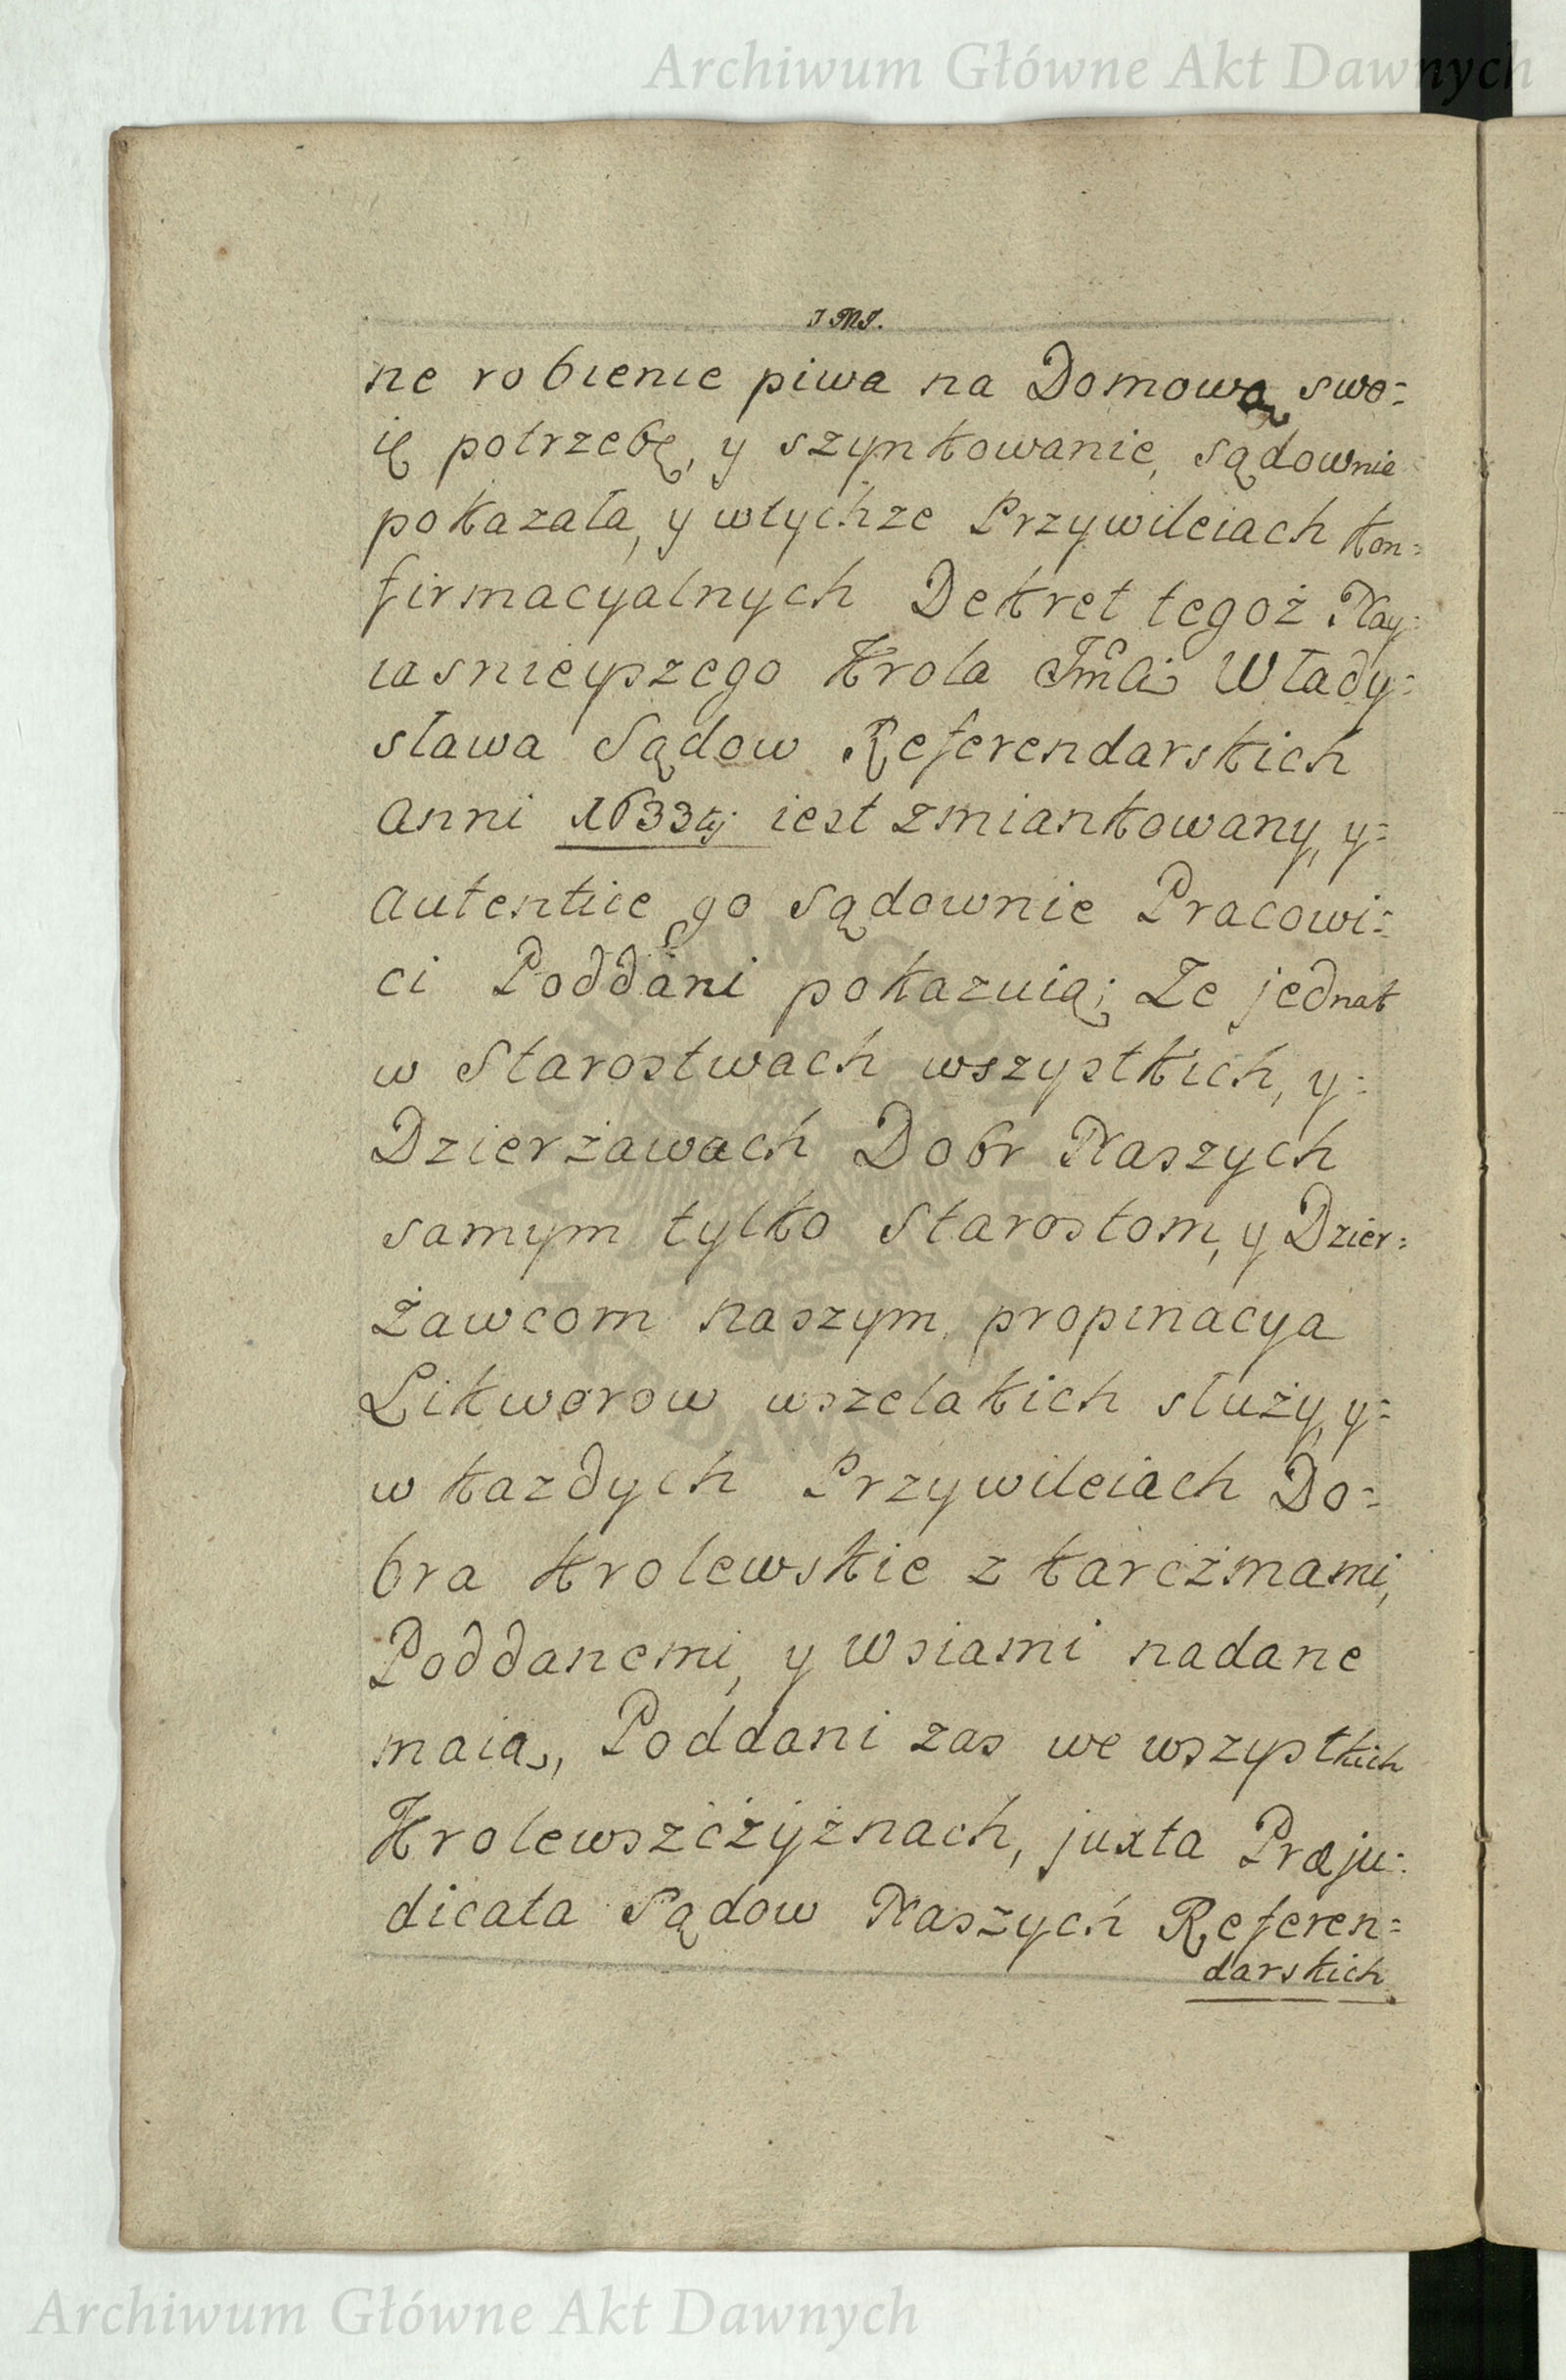 Archiwum Główne Akt Dawnych
J M J.
ne robienie piwa na Domową swo=
ię potrzebę, y szynkowanie, sądownie
pokazała, y wtychze Przywileiach kon=
firmacyalnych Dekret tegoż Nay=
iasnieyszego Krola Jmci Włady=
sława Sądow Referendarskich
anni 1633tij iest zmiankowany, y=
autentice go sądownie Pracowi=
ci Poddani pokazuią; Ze jednak
w Starostwach wszystkich, y=
Dzierżawach Dobr Naszych
samym tylko Starostom, y Dzier=
żawcom naszym, propinacya
Likworow wszelakich służy, y=
w kazdych Przywileiach Do=
bra Krolewskie z karcżmami,
Poddanemi, y Wsiami nadane
maią, Poddani zas we wszystkich
Krolewszcżyżnach, juxta Præju=
dicata Sądow Naszych Referen=
darskich
Archiwum Główne Akt Dawnych